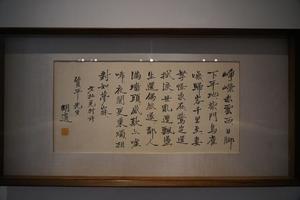 崢嶸赤雲西日腳
下平地柴門鳥雀
噪歸客千里至妻
孥怪我在驚定還
拭淚世亂遭飄蕩
生還偶然遂鄰人
滿牆頭感歎亦歔
欷夜闌更秉燭相
對如夢寐
先生